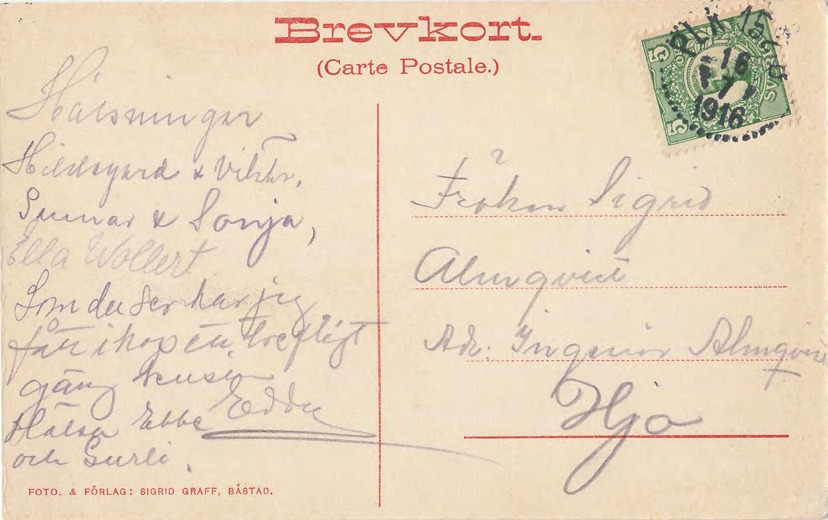 Brevkort.
(Carte Postale.)
5 5
PLK 15
16
7
1916
Hälsningar
Hildegard & Viktor,
Gunnar & Sonja,
Ella Wollert
Som du ser har jag
fått ihop ett trefligt
gäng
Edda
Hälsa Ebbe
och Surli.
Fröken Sigrid
Almqvist
Adr. Ingeniör Almqvist
Hjo
FOTO. & FÖRLAG: SIGRID GRAFF, BÅSTAD.